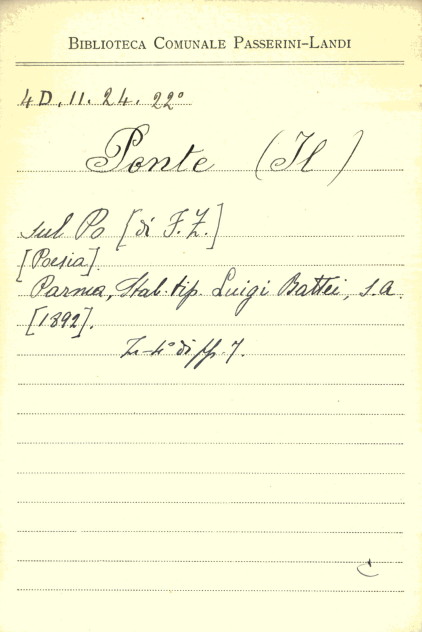 BIBLIOTECA COMUNALE PASSERINI-LANDI
4 D. 11. 24. 22°
Ponte (Il)
sul Po [di F. Z.]
[Poesia].
Parma, Stab. tip. Luigi Battei, s.a.
[1892].
4° di pp. 7.
C